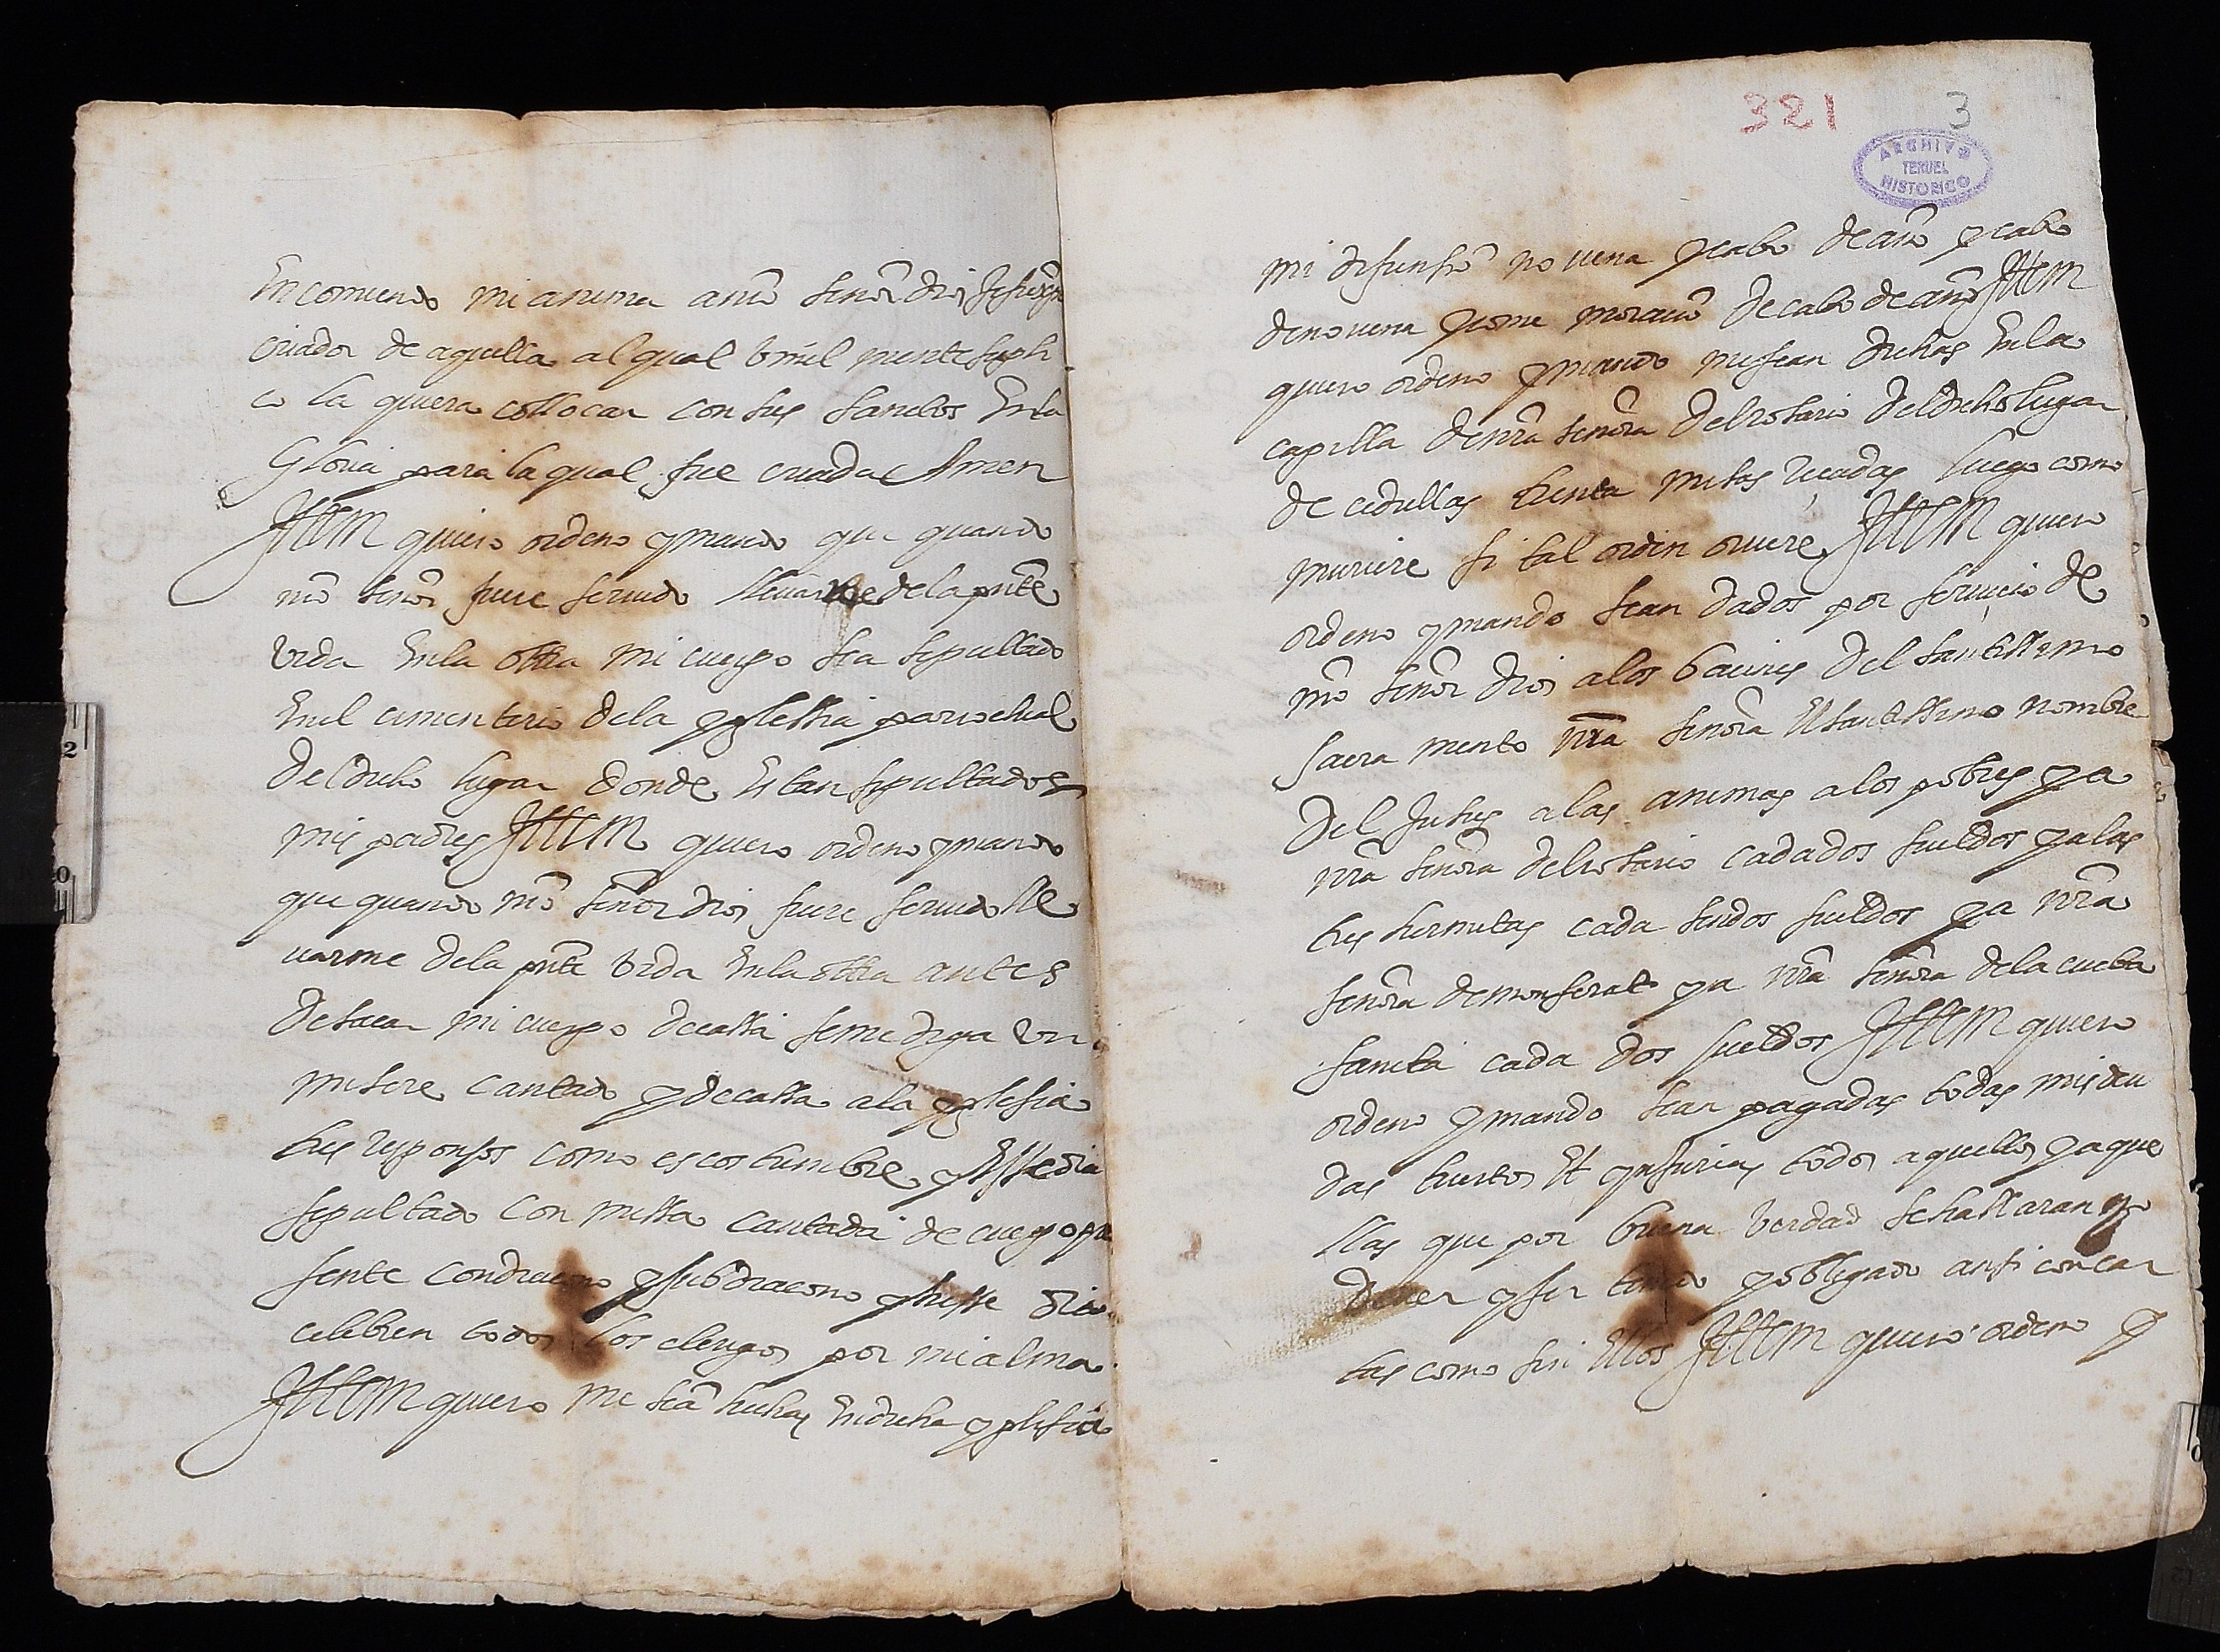 Encomiendo mi anima a nrõ señor dios Jesuxpo
criador de aquella al qual vmil mente supli
co la quiera collocar con sus sanctos En la
Gloria para la qual fue criada Amen
JttEM quiero ordeno y mando que quando
nrõ señor fuere seruido lleuarme de la pnte
vida En la ottra mi cuerpo sea sepultado
En el cimenterio de la yglessia parrochial
del dicho lugar donde Estan sepultados
mis padres JttEM quiero ordeno y mando
que quando nrõ señor dios fuere seruido lle
uarme de la pnte vida En la ottra antes
de sacar mi cuerpo de cassa se me diga vn
misere cantado y de cassa a la yglesia
tres responsos como es costumbre y Esse dia
sepultado con missa cantada de cuerpo pre
sente con diacono y subdiacono y En esse dia
celebren todos los clerigos por mi alma
JttEM quiero me seã hechas En dicha yglesia
321 3
ARCHIVO
TERUEL
HISTORICO
mi defunsiõ nouena y cabo de año y cabo
de nouena y cabo de año JttEM
quiero ordeno y mando me sean dichas En la
capilla de nrã señora del rosario del dicho lugar
de cedrillas trenta misas reçadas luego como
muriere si tal orden vuiere JttEM quiero
ordeno y mando sean dados por seruicio de
nrõ señor dios a los bacines del santissimo
sacra mento nrã señora El santissimo nombre
del Jesus a las animas a los pobres y a
nrã señora del rosario cada dos sueldos y a las
tres hermitas cada sendos sueldos y a nrã
señora de monserat y a nrã señora de la cueba
sancta cada dos sueldos JttEM quiero
ordeno y mando sean pagadas todas mis deu
das tuertos Et ynjurias todos aquellos y aque
llas que por buena verdad se hallaran yo
deuer y ser tenido y obligado ansi con car
tas como sin Ellas JttEM quiero ordeno y